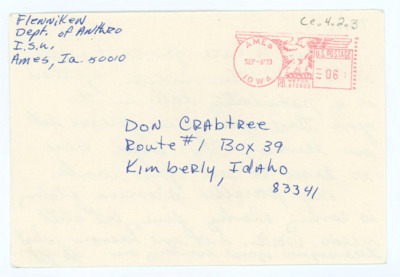 Flenniken
Dept. of Anthro
I.S.U.
Ames, Ia. 50010
Ce.4.2.3
AMES
IOWA
SEP-6'73
U.S. POSTAGE
06
METER
Don Crabtree
Route #1 Box 39
Kimberly, Idaho
83341